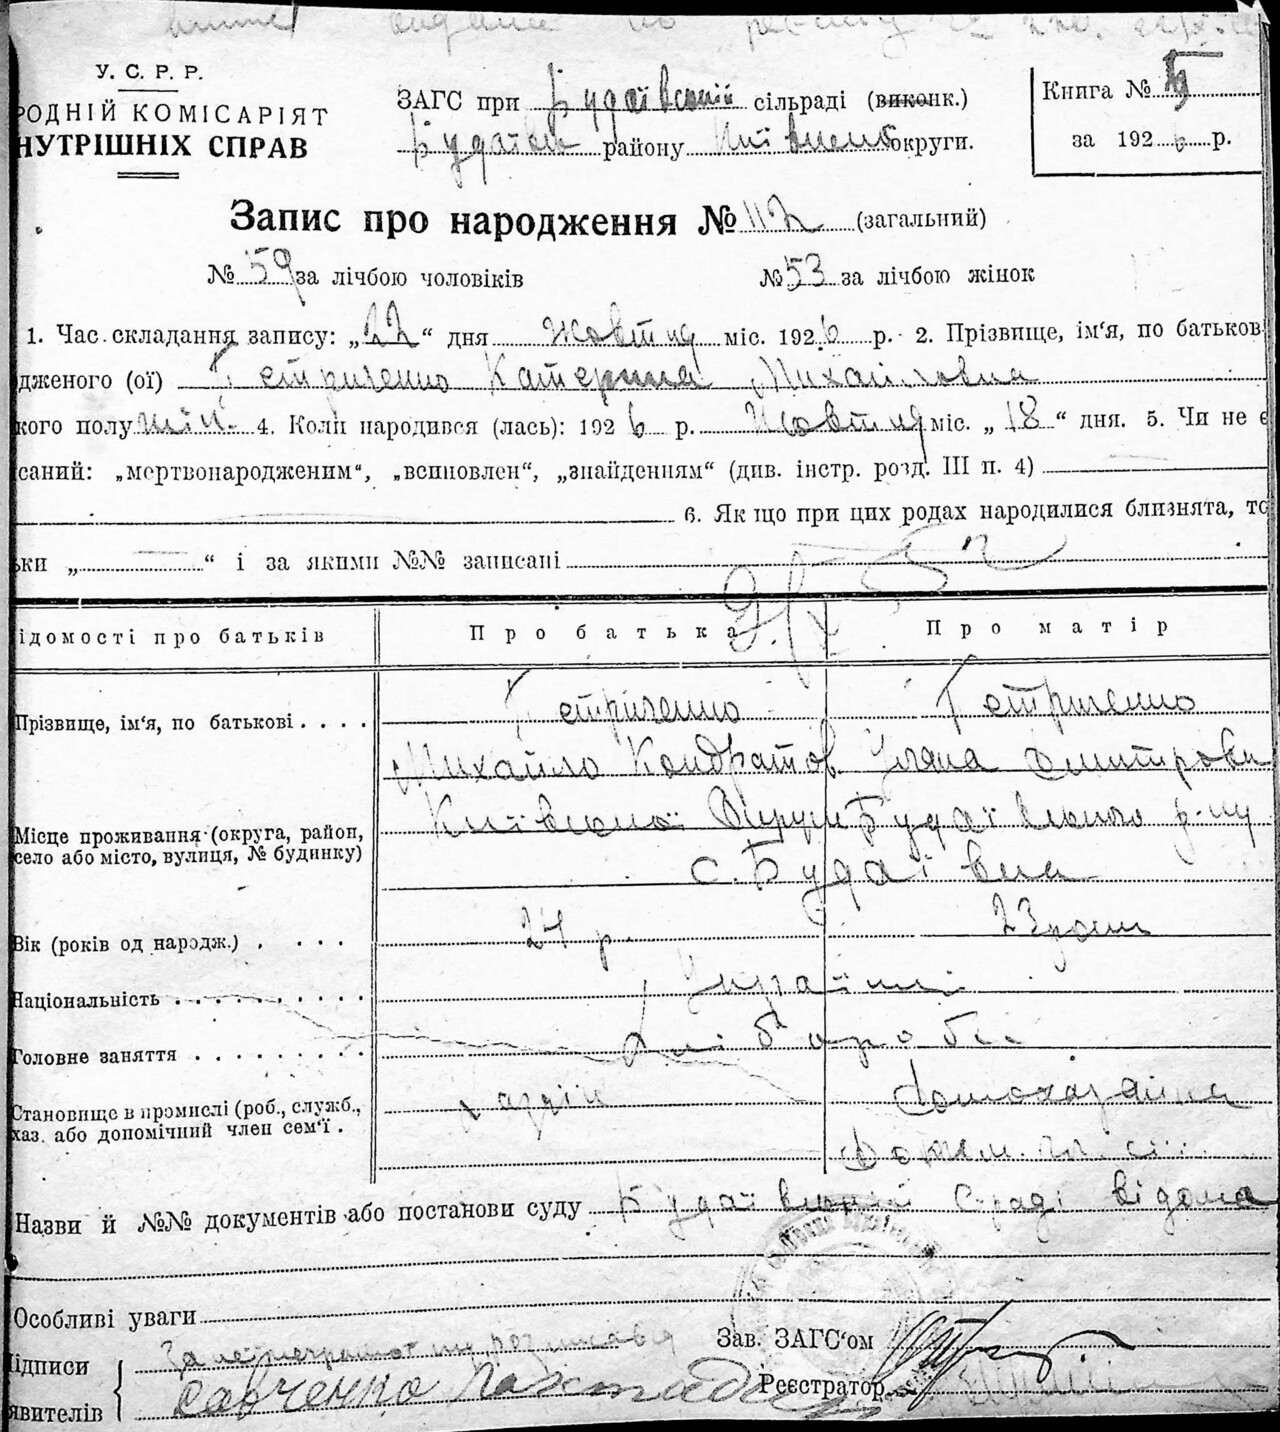 У. С. Р. Р.
РОДНІЙ КОМІСАРІЯТ
НУТРІШНІХ СПРАВ
ЗАГС при Будаївській сільраді (виконк.)
Будаївськ району Київської округи.
Книга №
за 1926 р.
Запис про народження № 112 (загальний)
№ 59 за лічбою чоловіків № 53 за лічбою жінок
1. Час складання запису: „22“ дня Жовтня міс. 1926 р. 2. Прізвище, ім‘я, по батьков
дженого (ої) Петриченко Катерина Михайловна
кого полу жін. 4. Коли народився (лась): 1926 р. Жовтня міс. „18“ дня. 5. Чи не є
саний: „мертвонародженим“, „всиновлен“, „знайденням“ (див. інстр. розд. III п. 4)
6. Як що при цих родах народилися близнята, то
ьки „ “ і за якими №№ записані
ідомості про батьків Про батька Про матір
Прізвище, ім‘я, по батькові Петриченко Петриченко
Михайло Кондратов. Уляна Дмитровн
Місце проживання (округа, район, село або місто, вулиця, № будинку) Київської Округи Будаївського р-ну
с. Будаївка
Вік (років од народж.) 24 р. 23 роки
Національність Українці
Головне заняття Хлібороби
Становище в промислі (роб., служб., хаз. або допомічний член сем‘ї. хазяїн Домохазяйка
Назви й №№ документів або постанови суду Будаївській С-раді відома
Особливі уваги
ідписи
явителів
За неписьменного розписався
Савченко
Зав. ЗАГС‘ом
Реєстратор